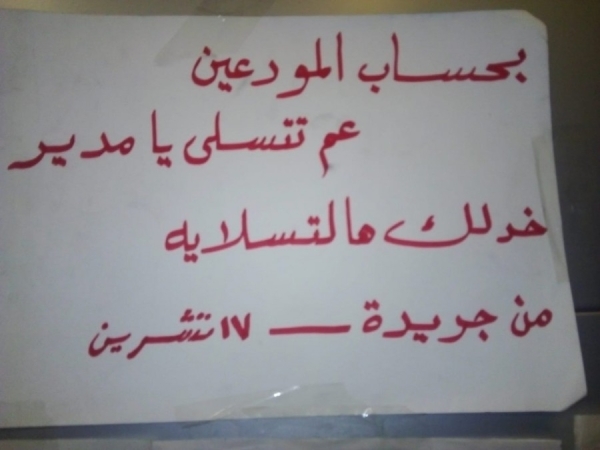 بحساب المودعين
عم تتسلى يا مدير
خدلك هالتسلايه
من جريدة — ١٧ تشرين